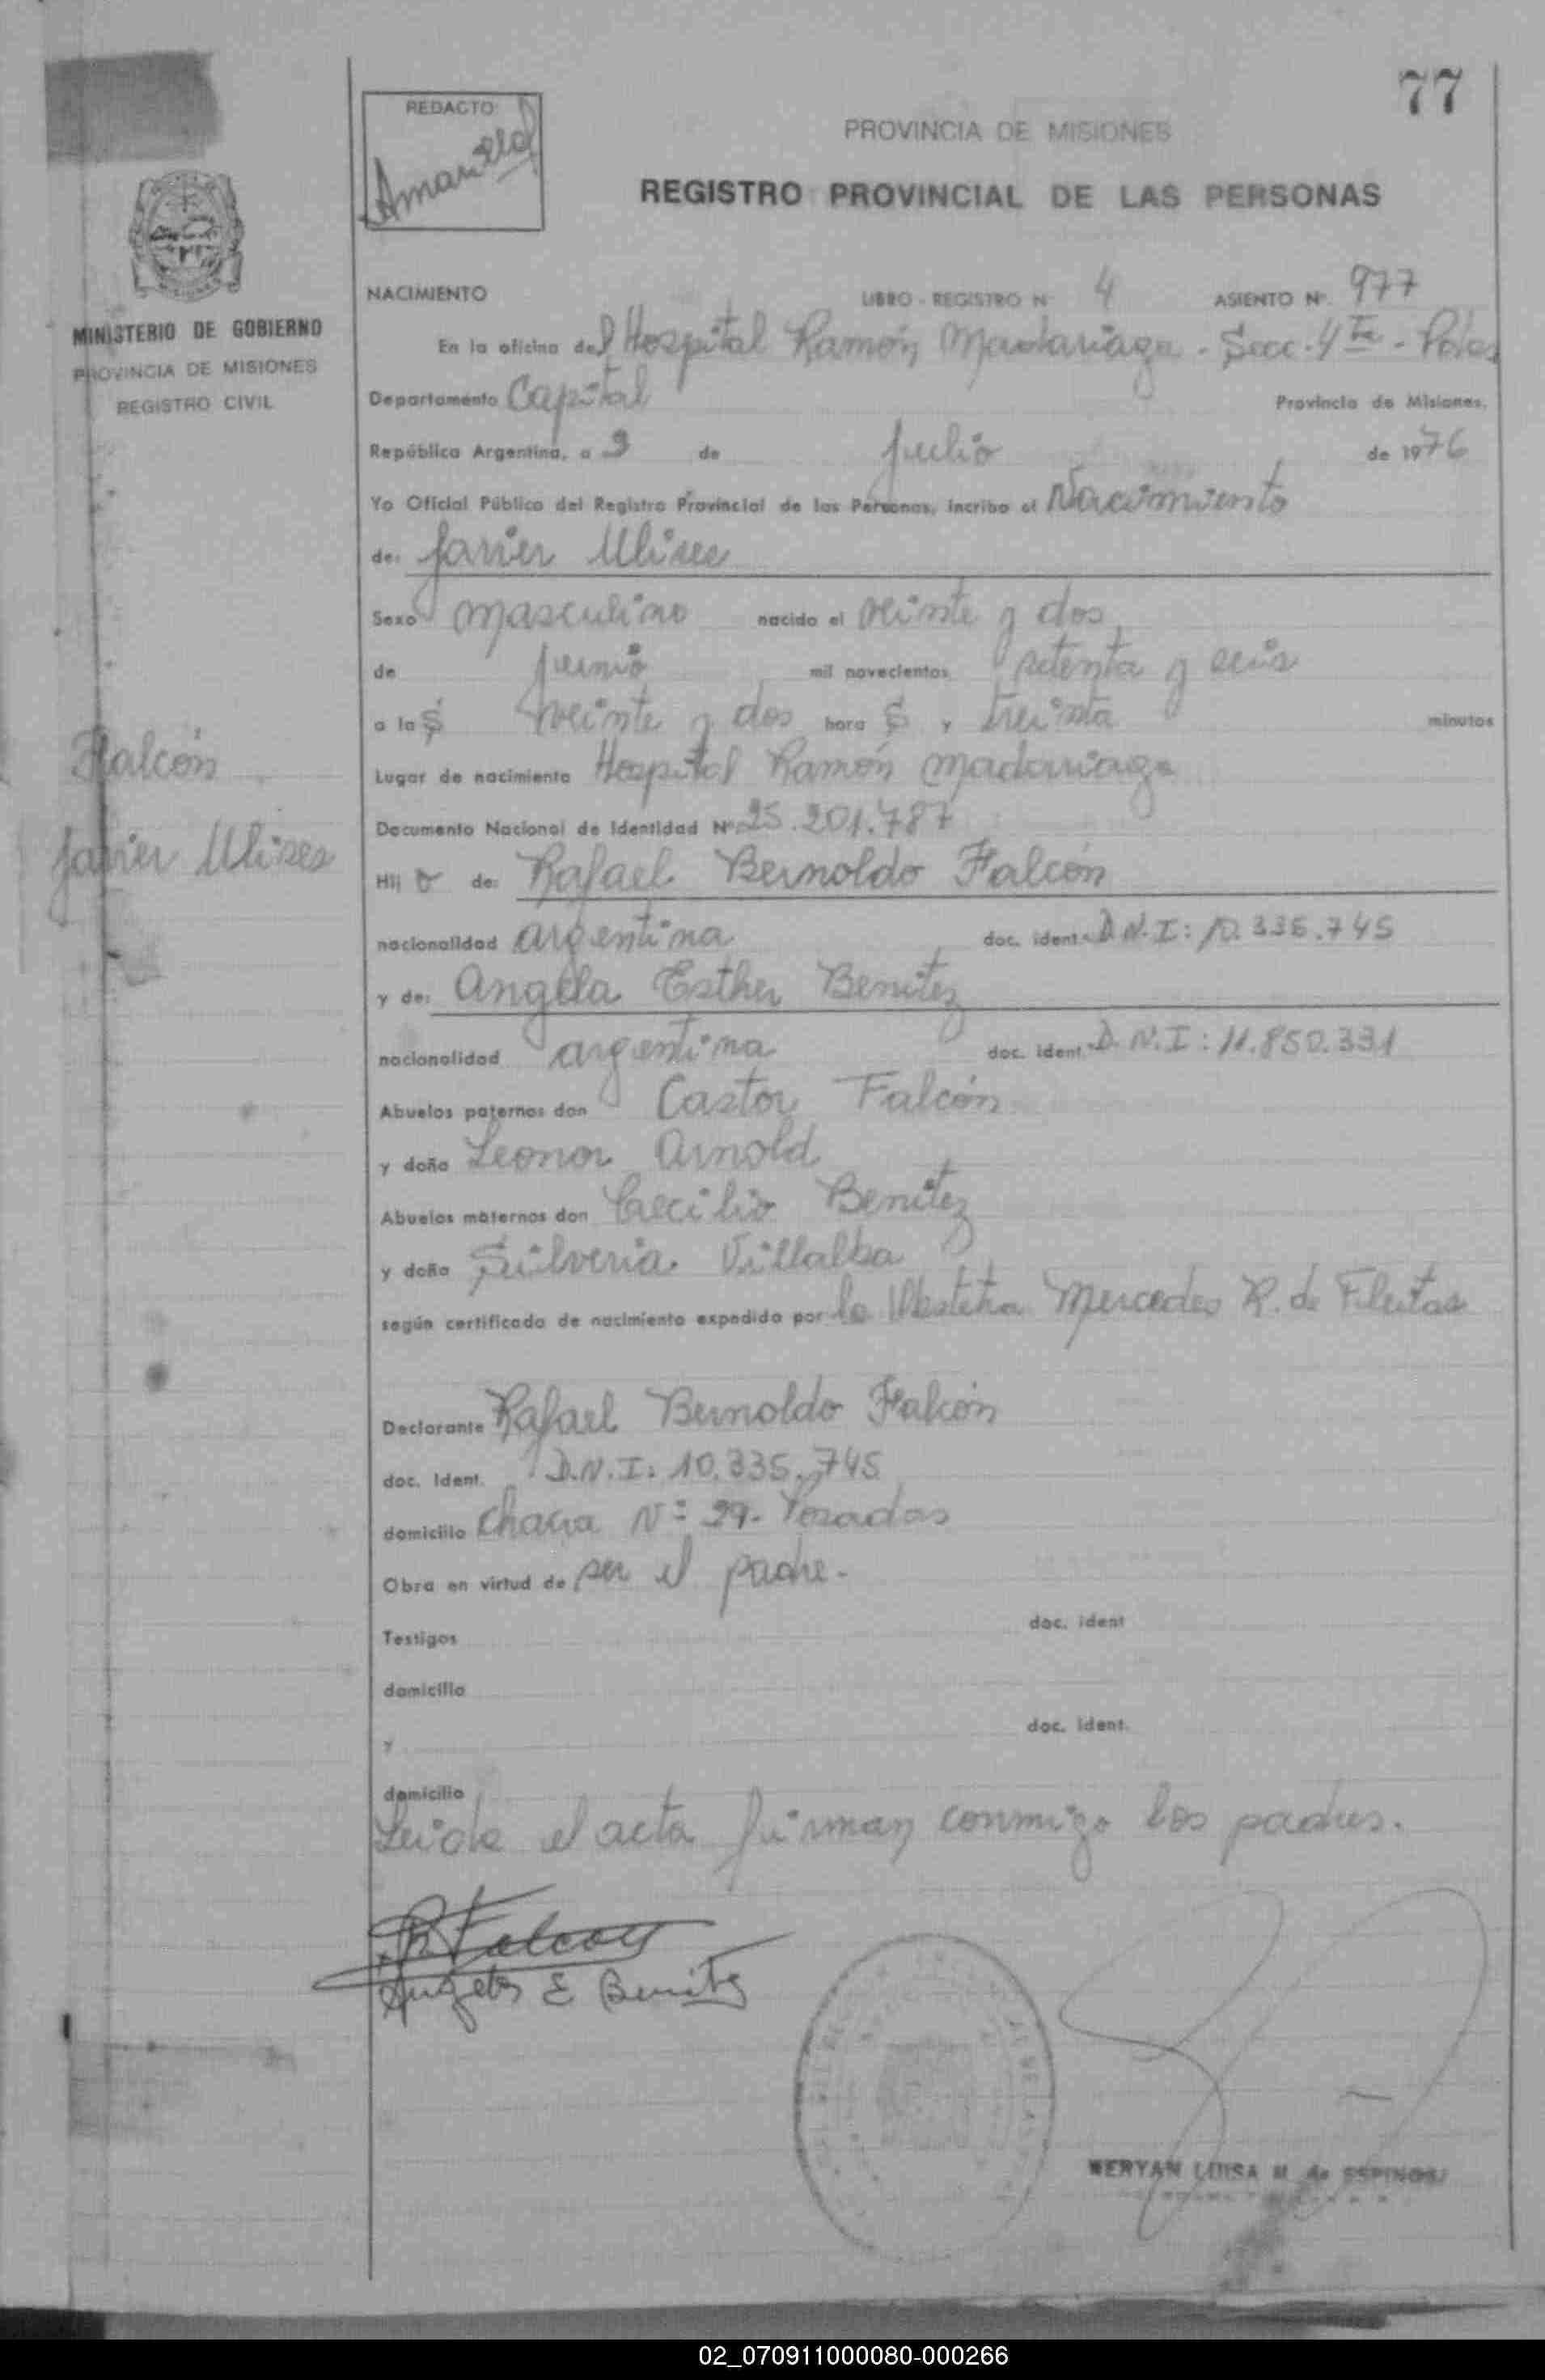 77
REDACTO:
PROVINCIA DE MISIONES
REGISTRO PROVINCIAL DE LAS PERSONAS
MINISTERIO DE GOBIERNO
PROVINCIA DE MISIONES
REGISTRO CIVIL
NACIMIENTO LIBRO - REGISTRO N° 4 ASIENTO N°. 977
En la oficina del Hospital Ramón Madariaga - Secc. 4ta - Pdas
Departamento Capital Provincia de Misiones,
República Argentina, a 9 de julio de 1976
Yo Oficial Público del Registro Provincial de las Personas, incribo el Nacimiento
de: Javier Ulises
Sexo masculino nacido el veinte y dos
de junio mil novecientos setenta y seis
a las veinte y dos hora s y treinta minutos
Lugar de nacimiento Hospital Ramón Madariaga
Falcón
Javier Ulises
Documento Nacional de Identidad N° 25.201.787
Hij o de: Rafael Bernoldo Falcón
nacionalidad argentina doc. ident. D.N.I: 10.335.745
y de: Angela Esther Benitez
nacionalidad argentina doc. ident. D.N.I: 11.850.331
Abuelos paternos don Castor Falcón
y doña Leonor Arnold
Abuelos maternos don Cecilio Benitez
y doña Silveria Villalba
según certificado de nacimiento expedido por la Obstetra Mercedes R. de Fleitas
Declarante Rafael Bernoldo Falcón
doc. Ident. D.N.I: 10.335.745
domicilio chacra N° 29- Posadas
Obra en virtud de ser el padre.-
Testigos doc. ident
domicilio
y doc. ident.
domicilio
Leida el acta firman conmigo los padres.
R Falcon
Angela E Benitez
MERYAN LUISA M. de ESPINOSA
02_070911000080-000266